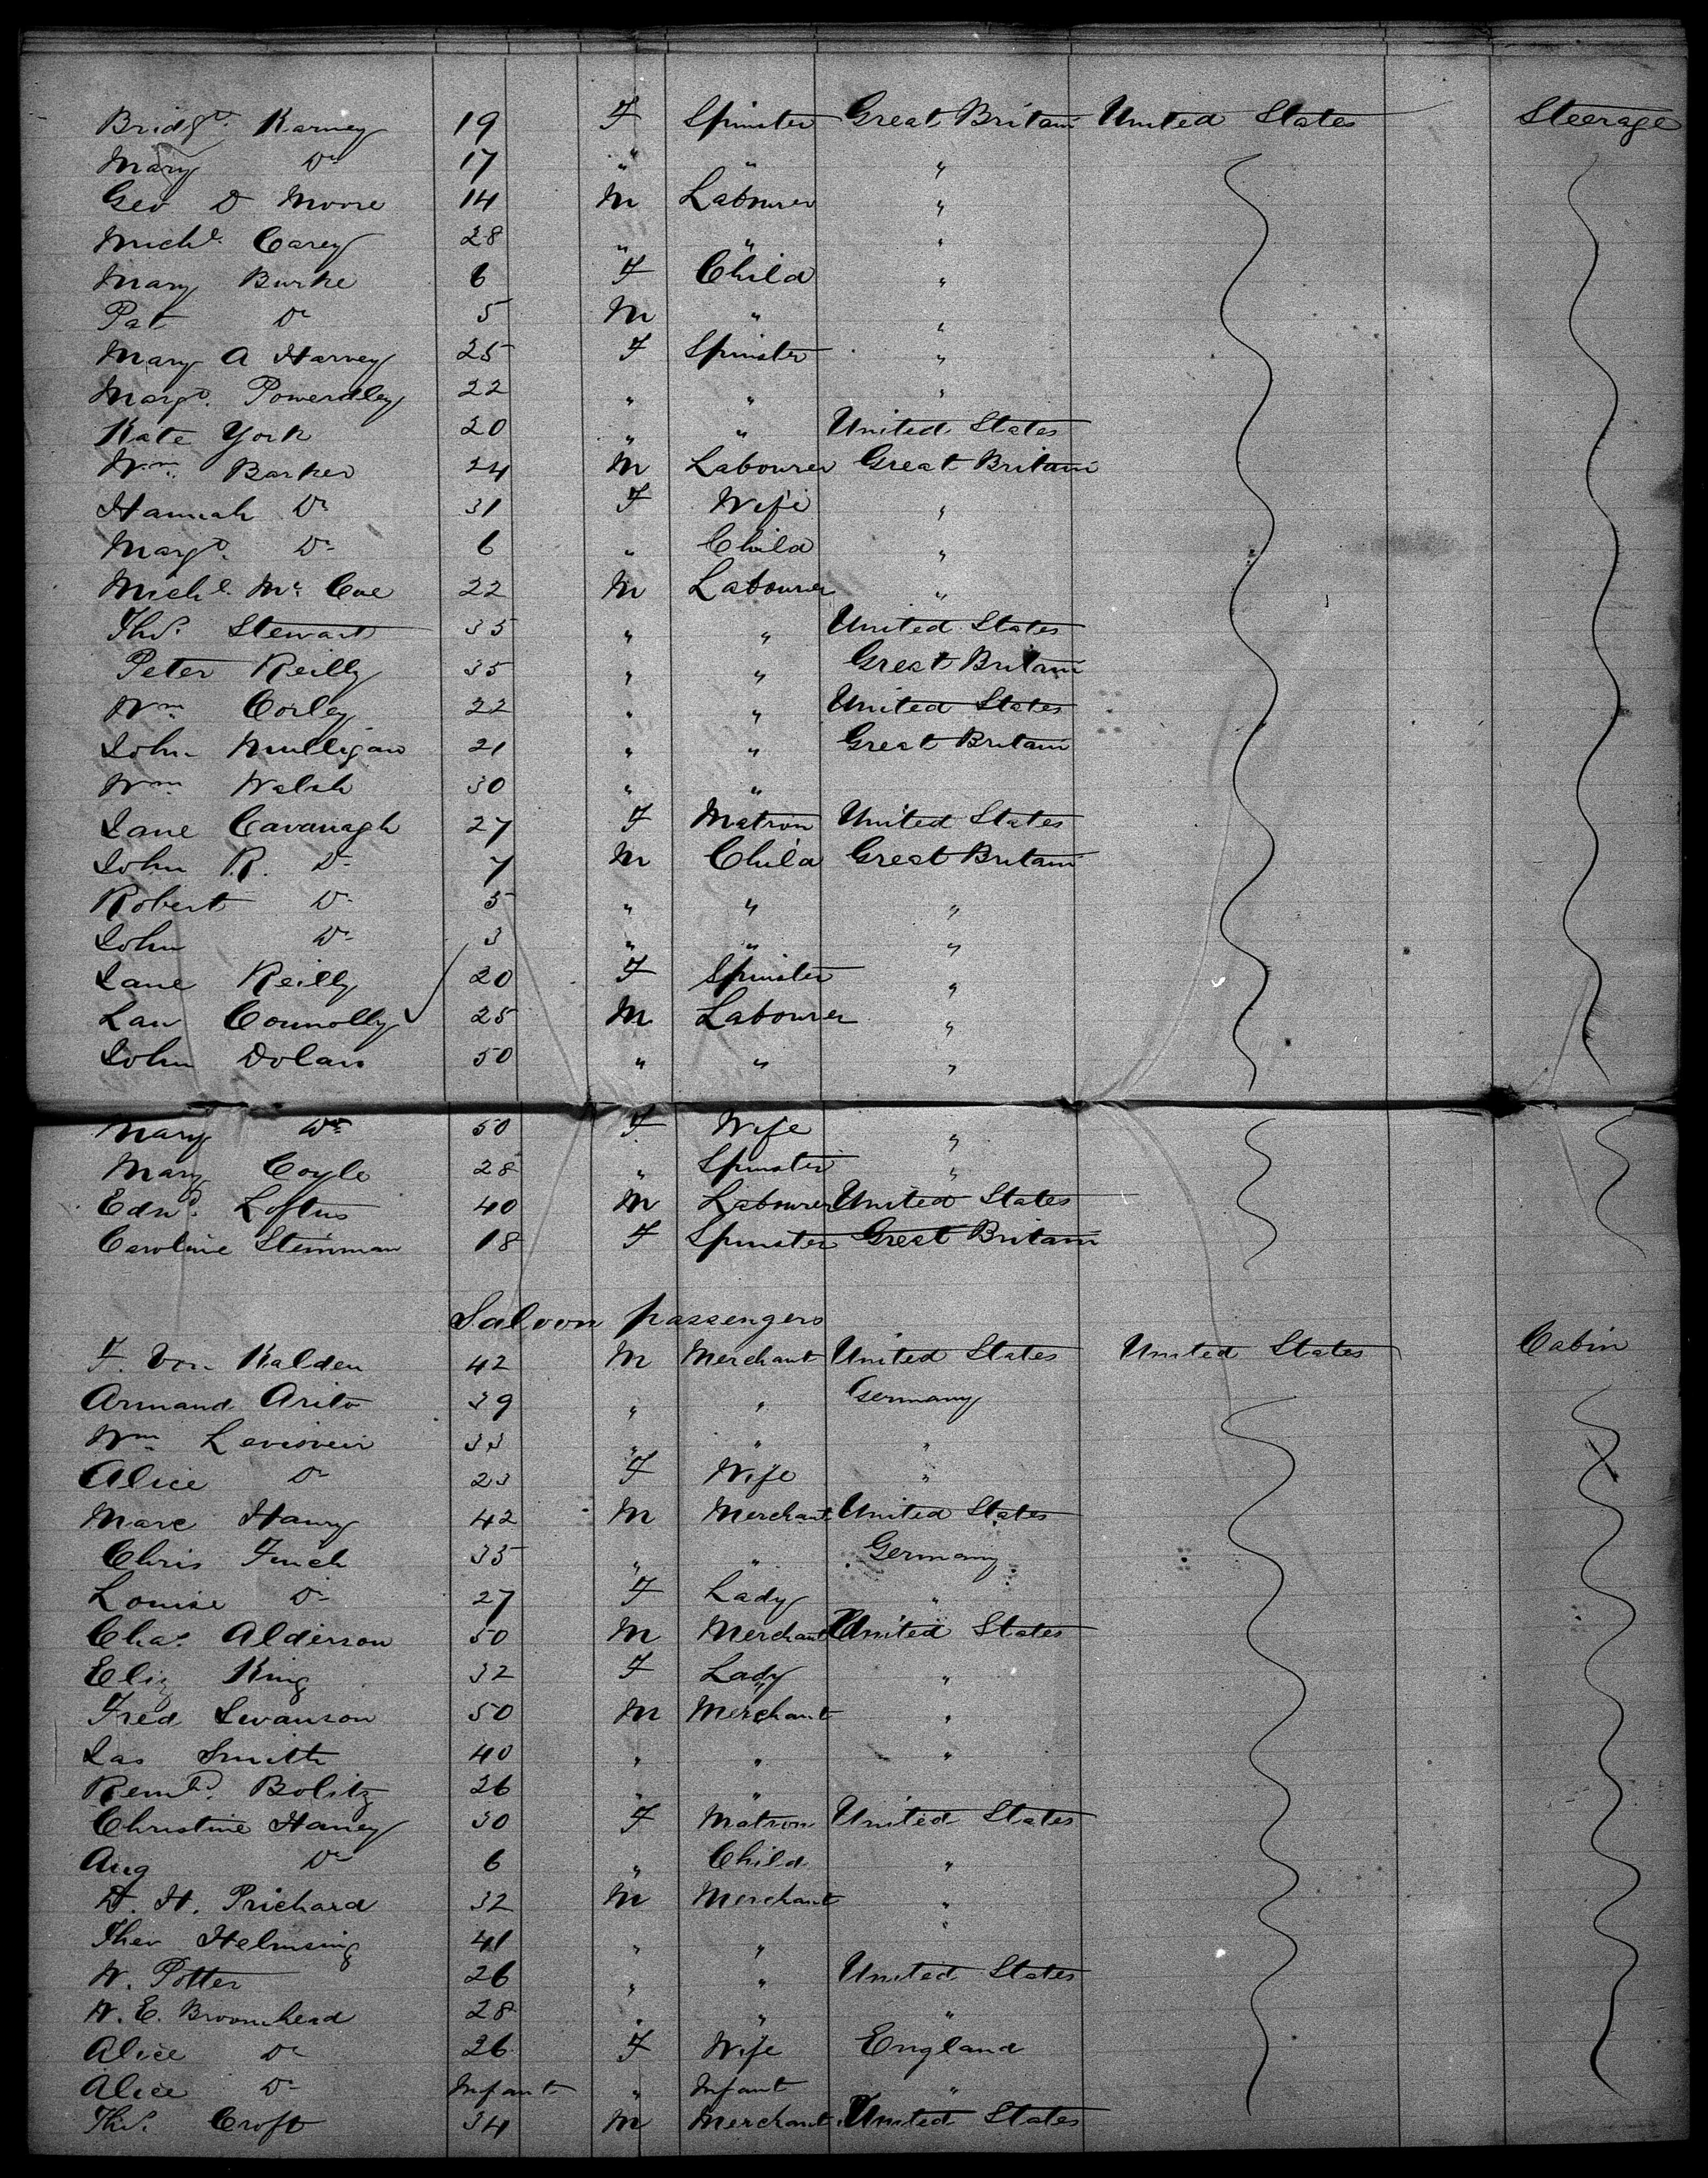 Bridgt. Karney 19 F Spinster Great Britain United States Steerage
Mary Do 17 " " "
Geo D Moore 14 M Labourer "
Michl. Carey 28 " " "
Mary Burke 6 F Child "
Pat Do 5 M " "
Mary A Harvey 25 F Spinster "
Margt. Powerdley 22 " " "
Kate York 20 " " United States
Wm. Barker 24 M Labourer Great Britain
Hannah Do 31 F Wife "
Margt. Do 6 " Child "
Michl. Mc Coe 22 M Labourer "
Thos. Stewart 35 " " United States
Peter Reilly 35 " " Great Britain
Wm Corley 22 " " United States
John Mulligan 21 " " Great Britain
Wm Walsh 30 " "
Jane Cavanagh 27 F Matron United States
John R. Do 7 M Child Great Britain
Robert Do 5 " " "
John Do 3 " " "
Jane Reilly 20 F Spinster "
Law Connolly 25 M Labourer "
John Dolan 50 " " "
Mary Do 50 F Wife "
Mary Coyle 28 " Spinster "
Edwd. Loftus 40 M Labourer United States
Caroline Steinman 18 F Spinster Great Britain
Saloon passengers
F. Von Kalden 42 M Merchant United States United States Cabin
Armand Arito 39 " " Germany
Wm 33 " " "
Alice Do 23 F Wife "
Marc Haury 42 M Merchant United States
Chris Finch 35 " " Germany
Louise Do 27 F Lady "
Chas. Alderson 50 M Merchant United States
Eliz King 32 F Lady "
Fred Swanson 50 M Merchant "
Jas Smith 40 " " "
Bolitz 26 " "
Christine Haney 30 F Matron United States
Aug Do 6 " Child "
D. H. Prichard 32 M Merchant "
Theo Helmsing 41 " " "
W. Potter 26 " " United States
W. E. Broomhead 28 " " "
Alice Do 26 F Wife England
Alice Do Infant " Infant "
Thos. Croft 34 M Merchant United States